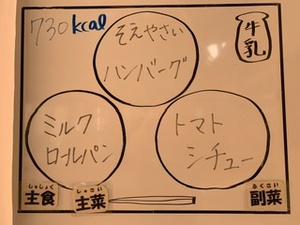 730 kcal
そえやさい
ハンバーグ
牛乳
ミルク
ロールパン
トマト
シチュー
しゅしょく
主食
しゅさい
主菜
ふくさい
副菜